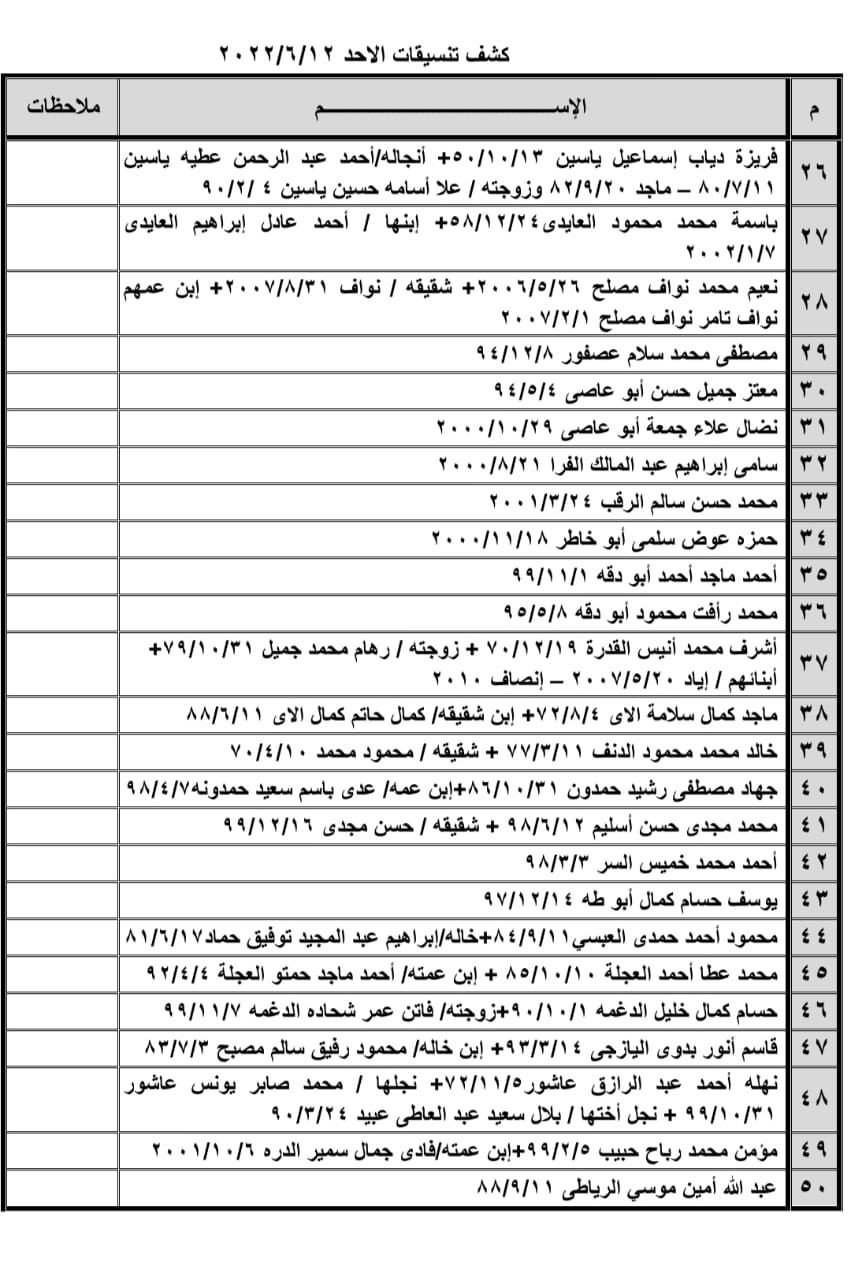 كشف تنسيقات الاحد ٢٠٢٢/٦/١٢
م الإســـــم ملاحظات
٢٦ فريزة دياب إسماعيل ياسين ٥٠/١٠/١٣+ أنجاله/أحمد عبد الرحمن عطيه ياسين
٨٠/٧/١١ – ماجد ٨٢/٩/٢٠ وزوجته / علا أسامه حسين ياسين ٩٠/٢/٤
٢٧ باسمة محمد محمود العايدى٥٨/١٢/٢٤+ إبنها / أحمد عادل إبراهيم العايدى
٢٠٠٢/١/٧
٢٨ نعيم محمد نواف مصلح ٢٠٠٦/٥/٢٦+ شقيقه / نواف ٢٠٠٧/٨/٣١+ إبن عمهم
نواف تامر نواف مصلح ٢٠٠٧/٢/١
٢٩ مصطفى محمد سلام عصفور ٩٤/١٢/٨
٣٠ معتز جميل حسن أبو عاصى ٩٤/٥/٤
٣١ نضال علاء جمعة أبو عاصى ٢٠٠٠/١٠/٢٩
٣٢ سامى إبراهيم عبد المالك الفرا ٢٠٠٠/٨/٢١
٣٣ محمد حسن سالم الرقب ٢٠٠١/٣/٢٤
٣٤ حمزه عوض سلمى أبو خاطر ٢٠٠٠/١١/١٨
٣٥ أحمد ماجد أحمد أبو دقه ٩٩/١١/١
٣٦ محمد رأفت محمود أبو دقه ٩٥/٥/٨
٣٧ أشرف محمد أنيس القدرة ٧٠/١٢/١٩ + زوجته / رهام محمد جميل ٧٩/١٠/٣١+
أبنائهم / إياد ٢٠٠٧/٥/٢٠ – إنصاف ٢٠١٠
٣٨ ماجد كمال سلامة الاى ٧٢/٨/٤+ إبن شقيقه/ كمال حاتم كمال الاى ٨٨/٦/١١
٣٩ خالد محمد محمود الدنف ٧٧/٣/١١ + شقيقه / محمود محمد ٧٠/٤/١٠
٤٠ جهاد مصطفى رشيد حمدون ٨٦/١٠/٣١+إبن عمه/ عدى باسم سعيد حمدونه٩٨/٤/٧
٤١ محمد مجدى حسن أسليم ٩٨/٦/١٢ + شقيقه / حسن مجدى ٩٩/١٢/١٦
٤٢ أحمد محمد خميس السر ٩٨/٣/٣
٤٣ يوسف حسام كمال أبو طه ٩٧/١٢/١٤
٤٤ محمود أحمد حمدى العبسي٨٤/٩/١١+خاله/إبراهيم عبد المجيد توفيق حماد٨١/٦/١٧
٤٥ محمد عطا أحمد العجلة ٨٥/١٠/١٠ + إبن عمته/ أحمد ماجد حمتو العجلة ٩٢/٤/٤
٤٦ حسام كمال خليل الدغمه ٩٠/١٠/١+زوجته/ فاتن عمر شحاده الدغمه ٩٩/١١/٧
٤٧ قاسم أنور بدوى اليازجى ٩٣/٣/١٤+ إبن خاله/ محمود رفيق سالم مصبح ٨٣/٧/٣
٤٨ نهله أحمد عبد الرازق عاشور٧٢/١١/٥+ نجلها / محمد صابر يونس عاشور
٩٩/١٠/٣١ + نجل أختها / بلال سعيد عبد العاطى عبيد ٩٠/٣/٢٤
٤٩ مؤمن محمد رباح حبيب ٩٩/٢/٥+إبن عمته/فادى جمال سمير الدره ٢٠٠١/١٠/٦
٥٠ عبد الله أمين موسي الرياطى ٨٨/٩/١١